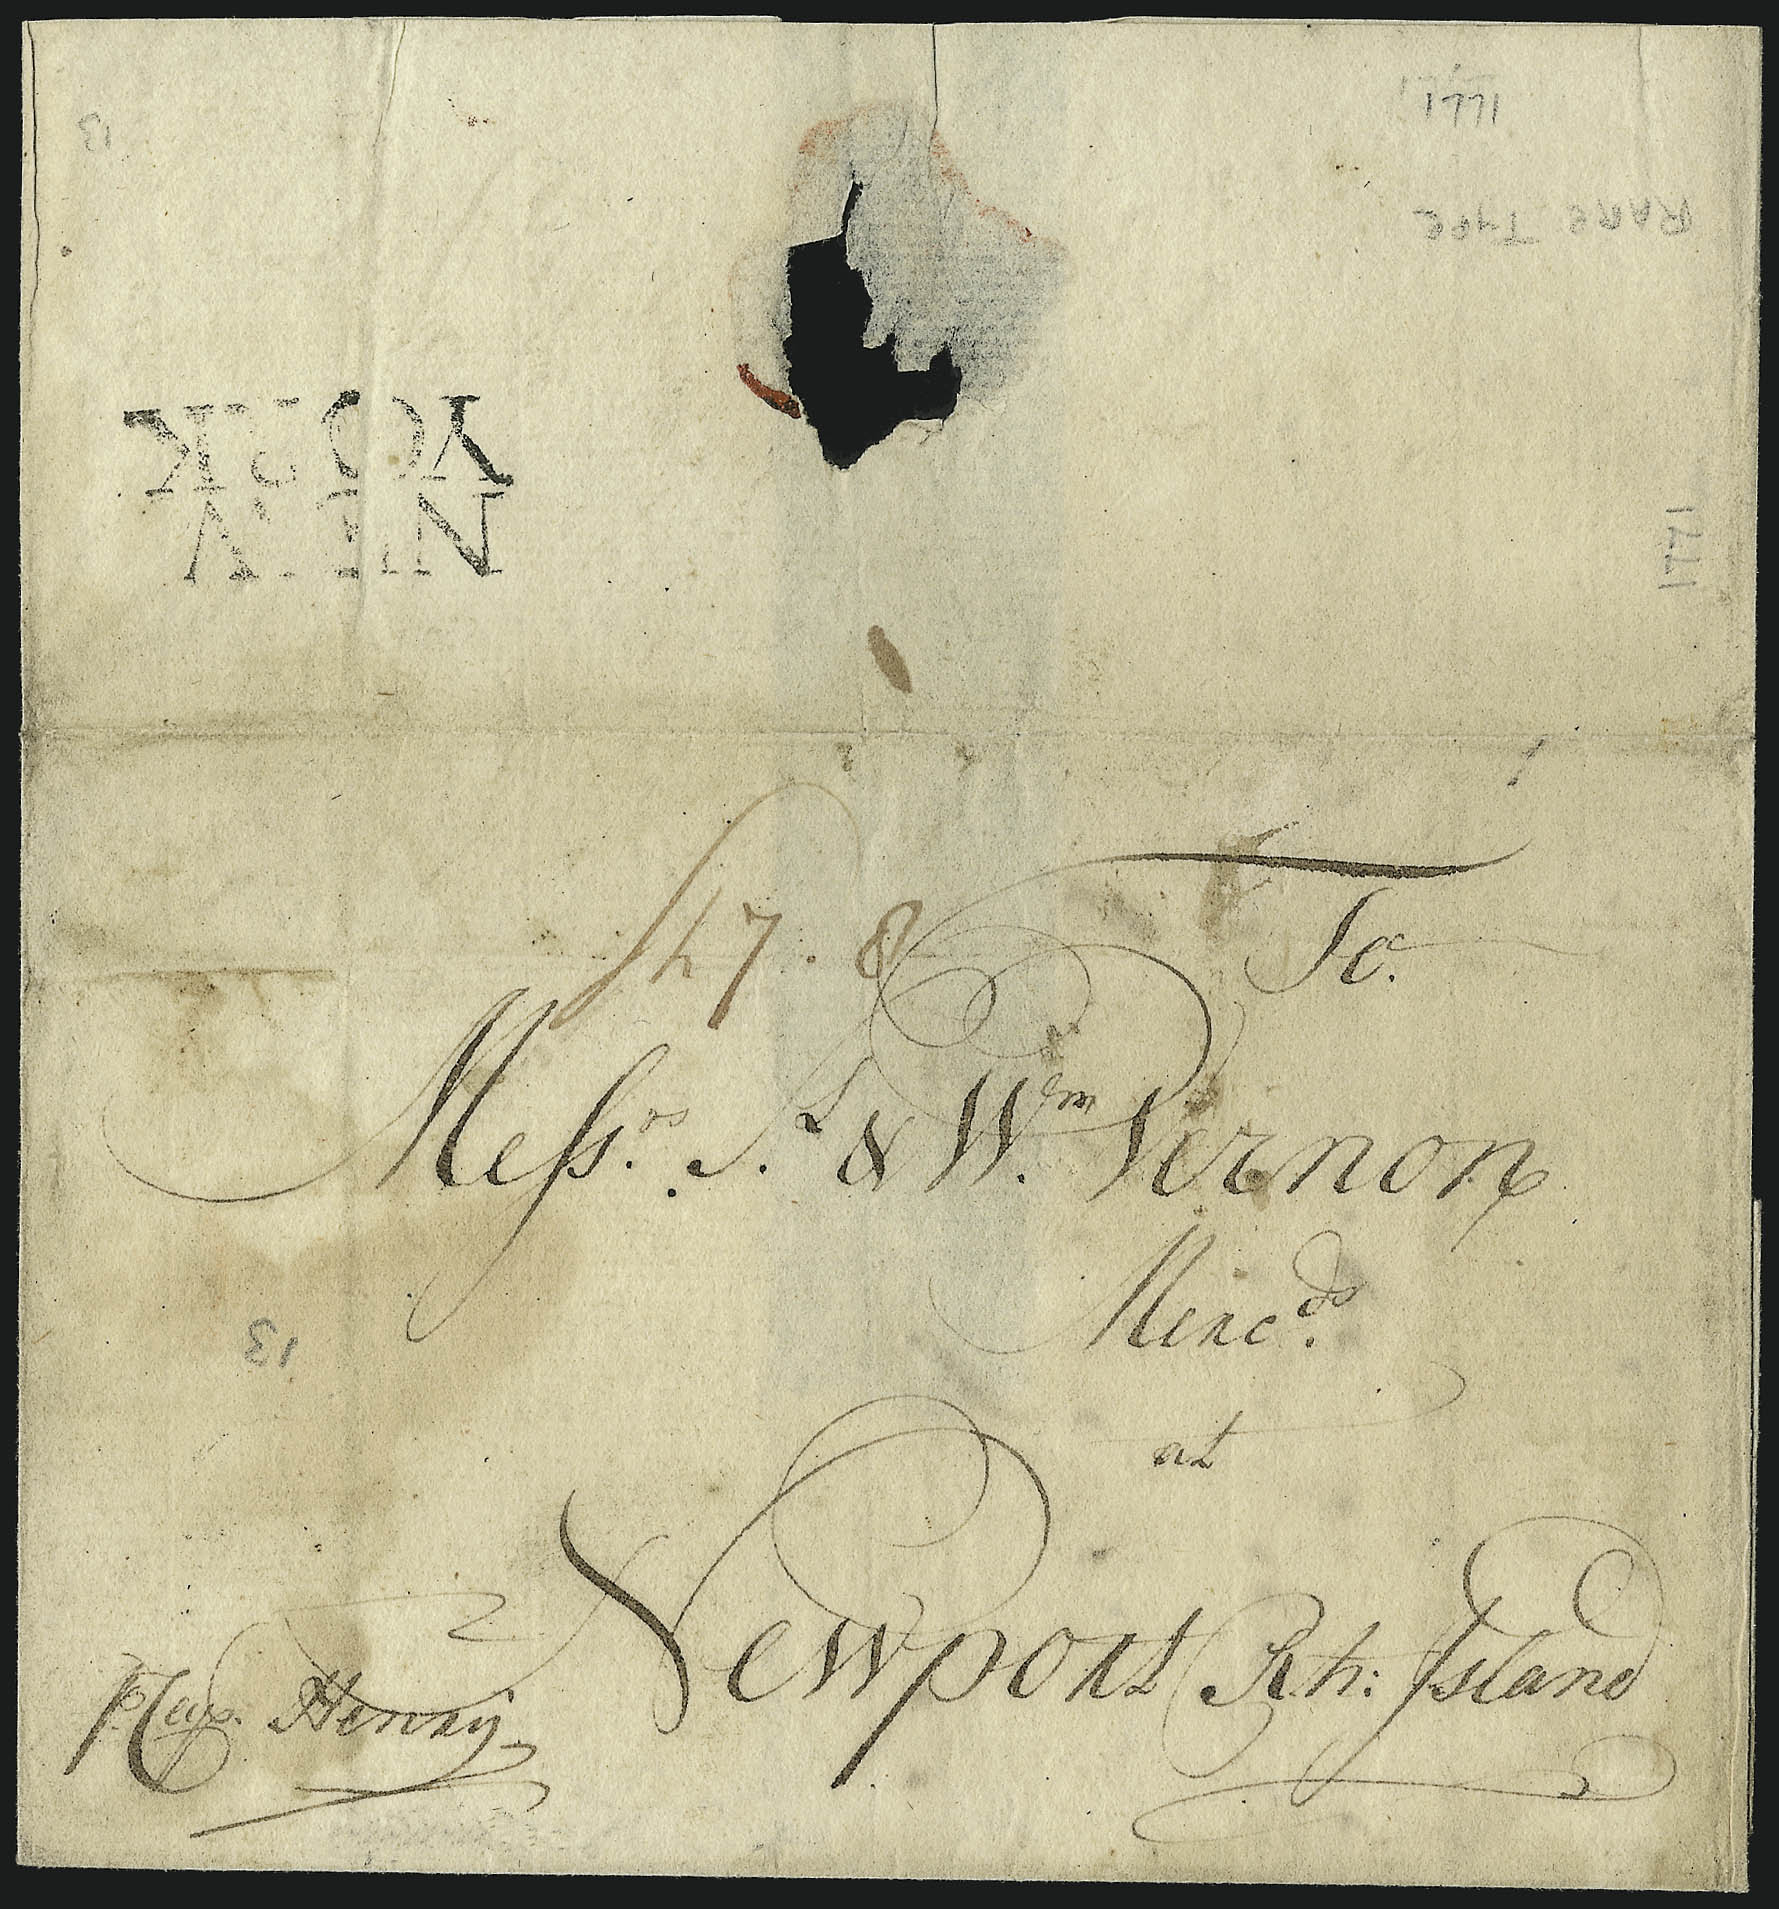 1771
RARE Type
13
NEW
YORK
1771
To.
Mess.rs S.l & W.m Vernon
Merc.ds
at
Newport Rh: Island
p Cap. Henry
13